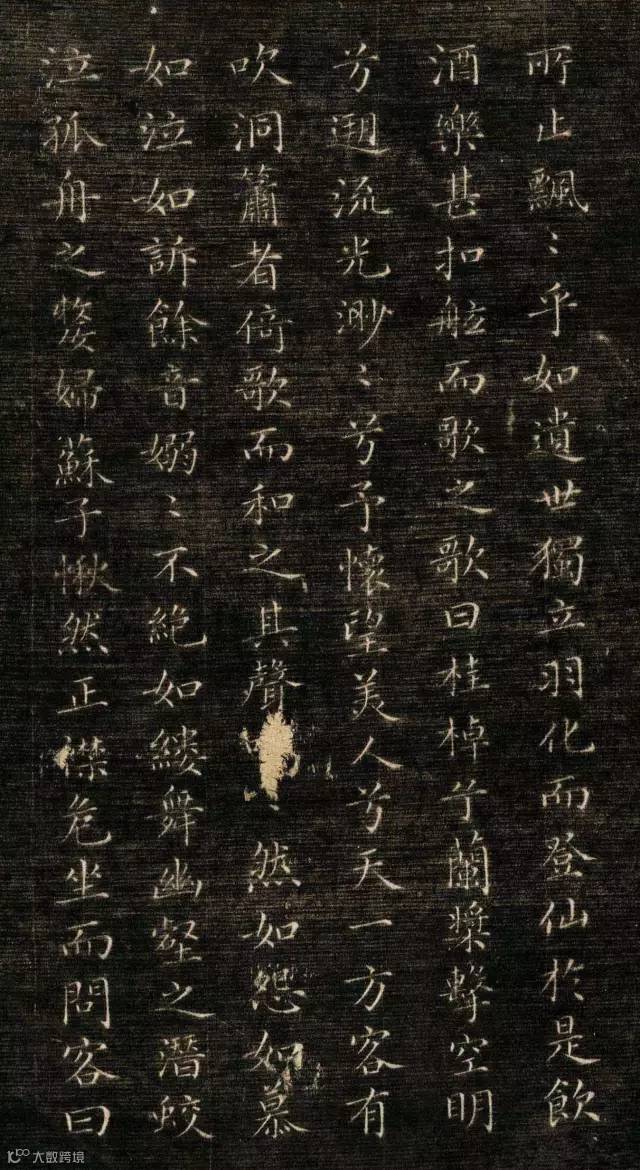 所止飄〻乎如遺世獨立羽化而登仙於是飲
酒樂甚扣舷而歌之歌曰桂棹兮蘭槳擊空明
兮遡流光渺〻兮予懷望美人兮天一方客有
吹洞簫者倚歌而和之其聲〻然如怨如慕
如泣如訴餘音嫋〻不絕如縷舞幽壑之潛蛟
泣孤舟之嫠婦蘇子愀然正襟危坐而問客曰
大数跨境